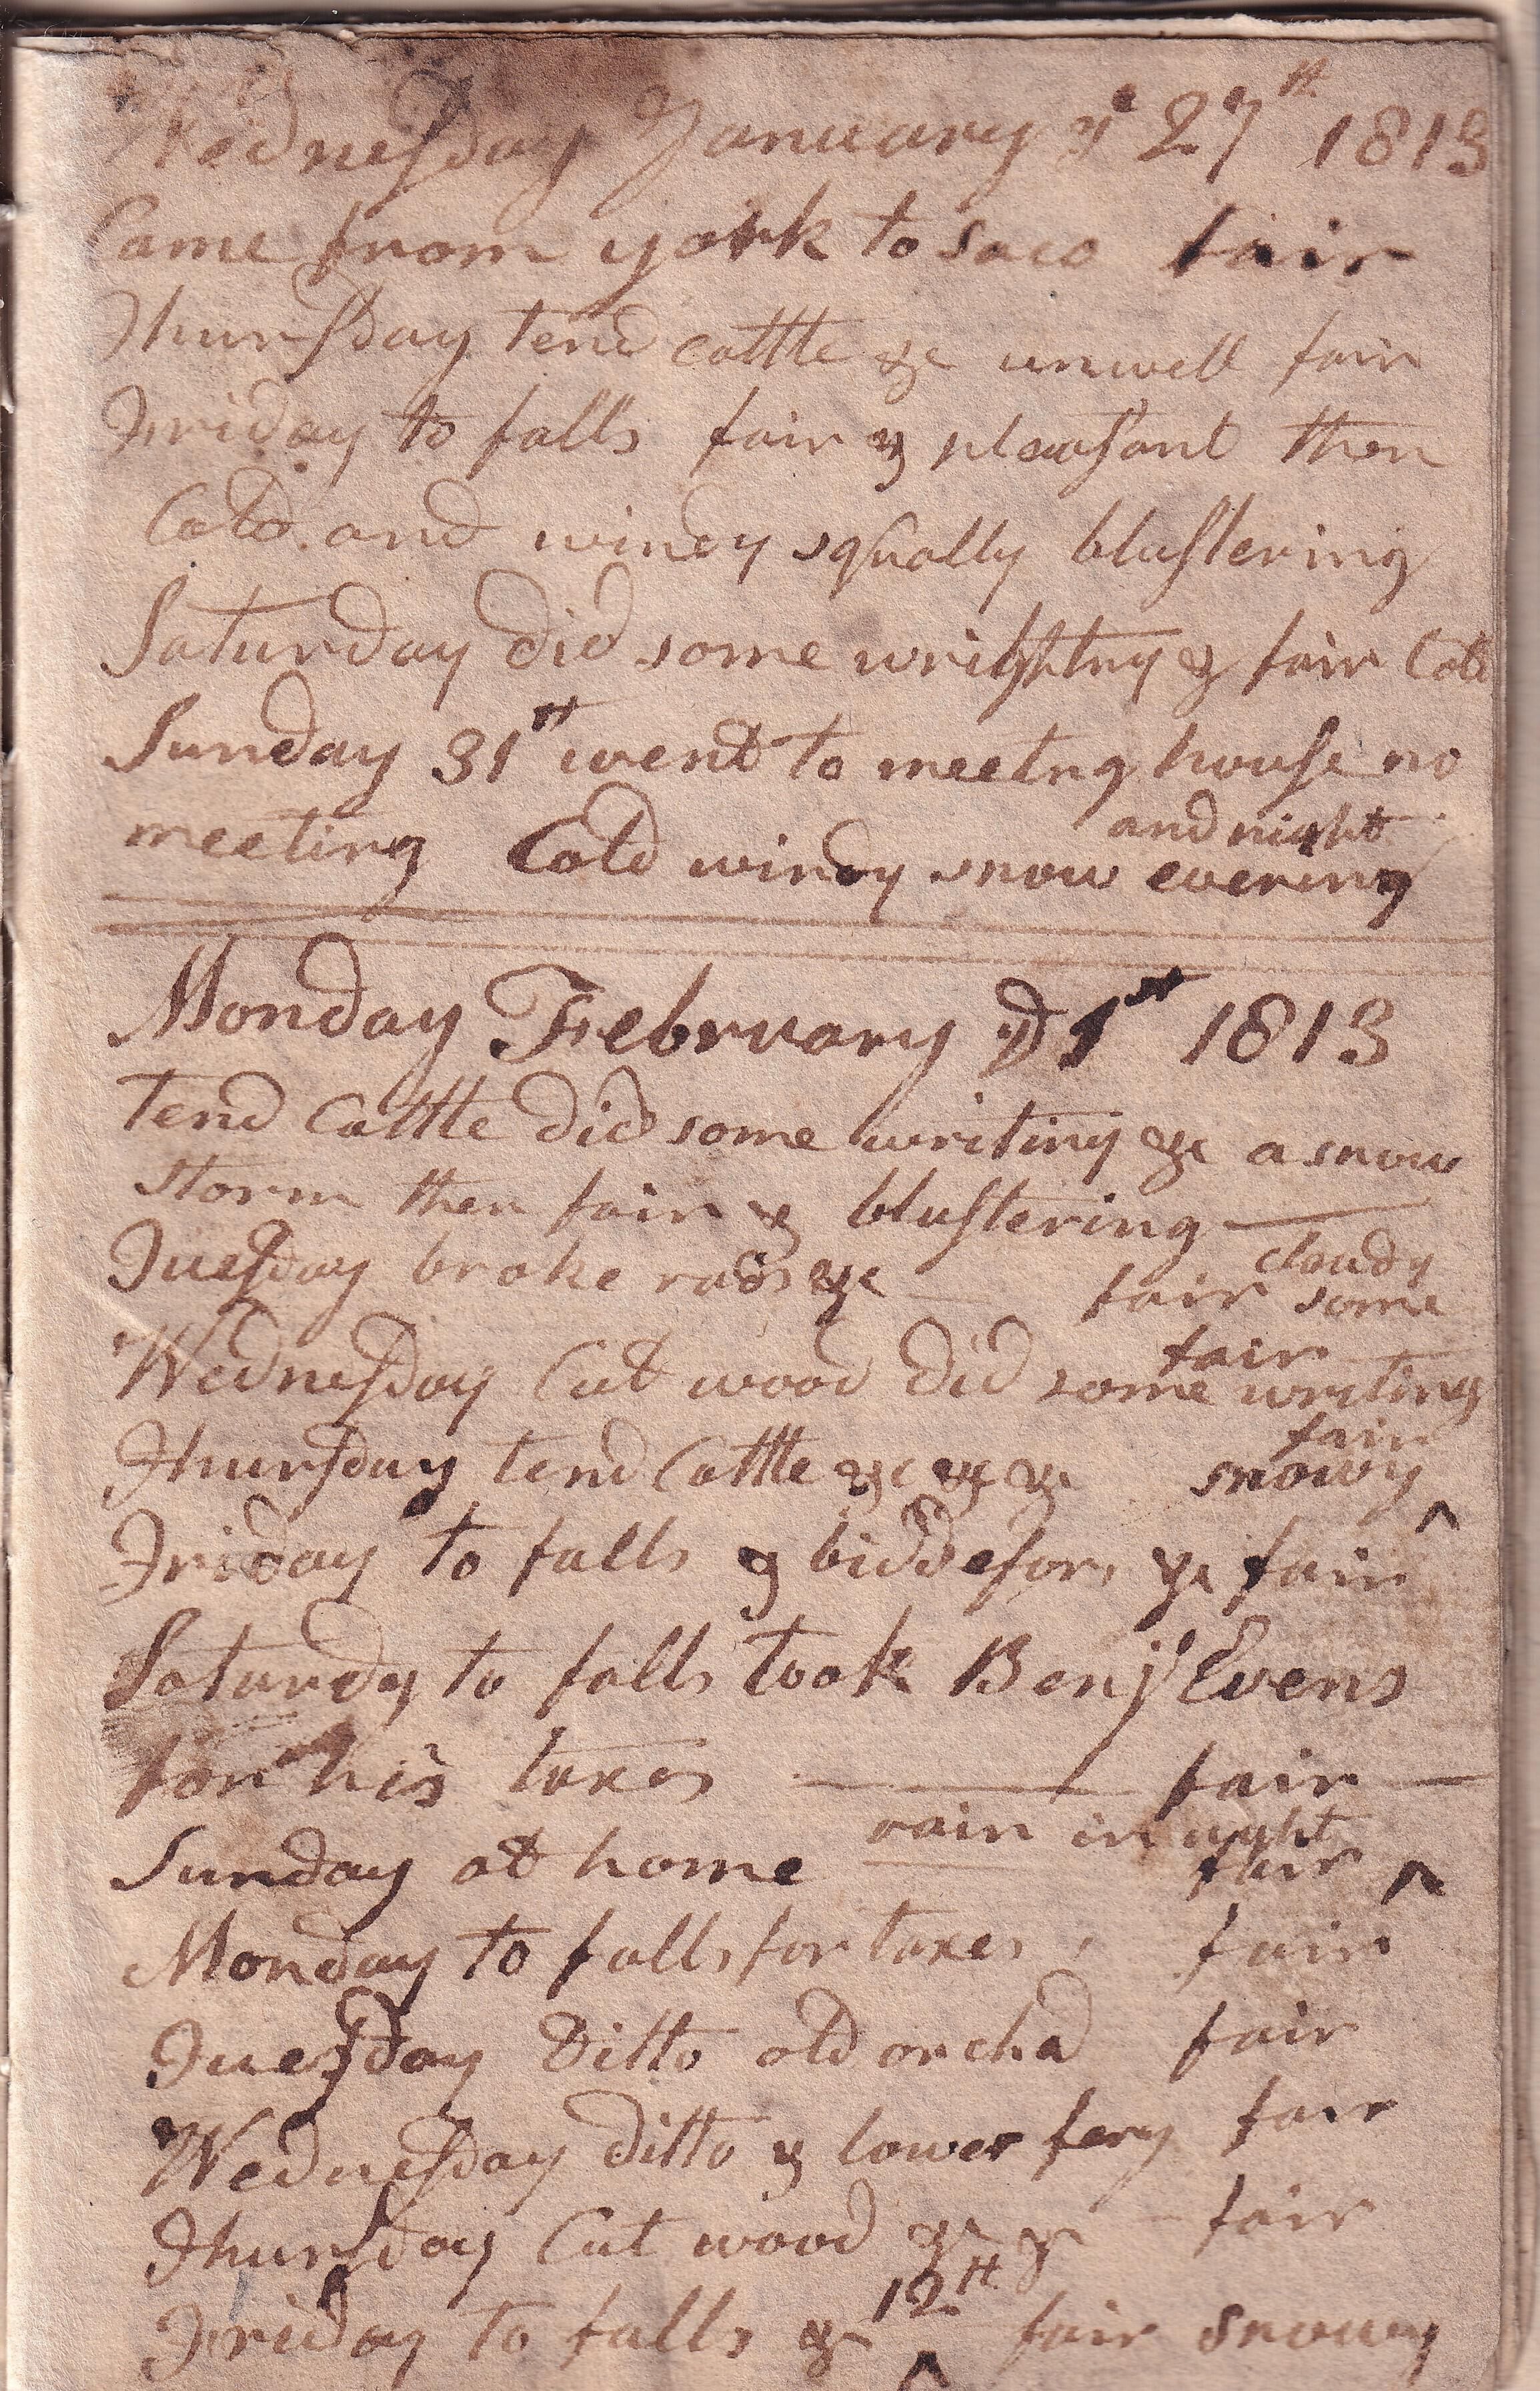 Wednesday January ye 27th 1813
Came from york to saco fair
Thursday tend cattle &c unwell fair
Friday to falls fair & pleasant then
Cold and windy squally blustering
Saturday did some wrightng & fair Cold
Sunday 31st went to meetng house no
and night
meeting Cold windy snow evening
Monday February ye 1st 1813
tend Cattle did some writing &c a snow
storm then fair & blustering
cloudy
Tuesday broke rods &c fair some
fair
Wednesday Cut wood did some writing
fair
Thursday tend Cattle &c &c &c snowy ^
Friday to falls & biddefor, &c fair
Saturdy to falls took Benj Evens
for his taxes fair
rain in night
Sunday at home fair ^
Monday to falls for taxes, fair
Tuesday Ditto old orchd fair
Wednesday ditto & lower fery fair
Thursday Cut wood &c &c fair
12th
Friday to falls &c ^ fair snowy